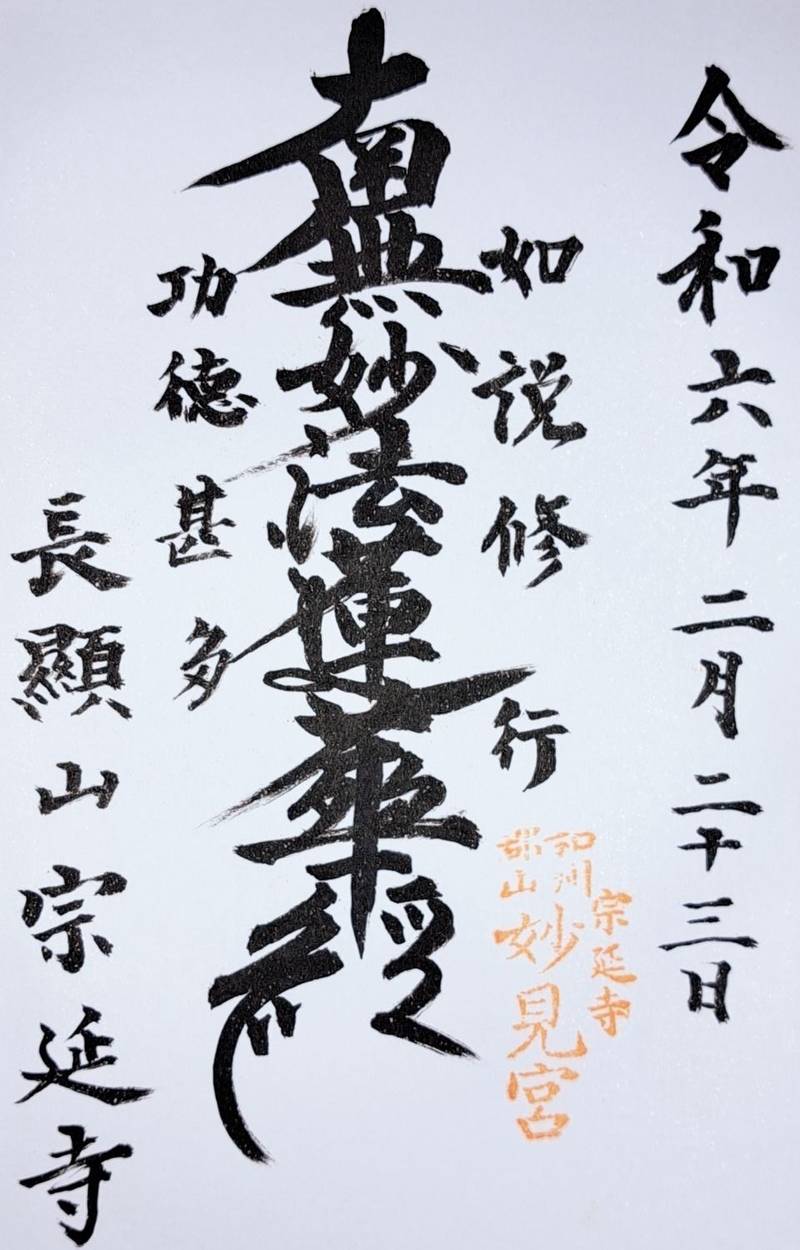 令和六年二月二十三日
如説修行
南無妙法蓮華経
功徳甚多
長顯山宗延寺
宗延寺
和州
郡山
妙見宮